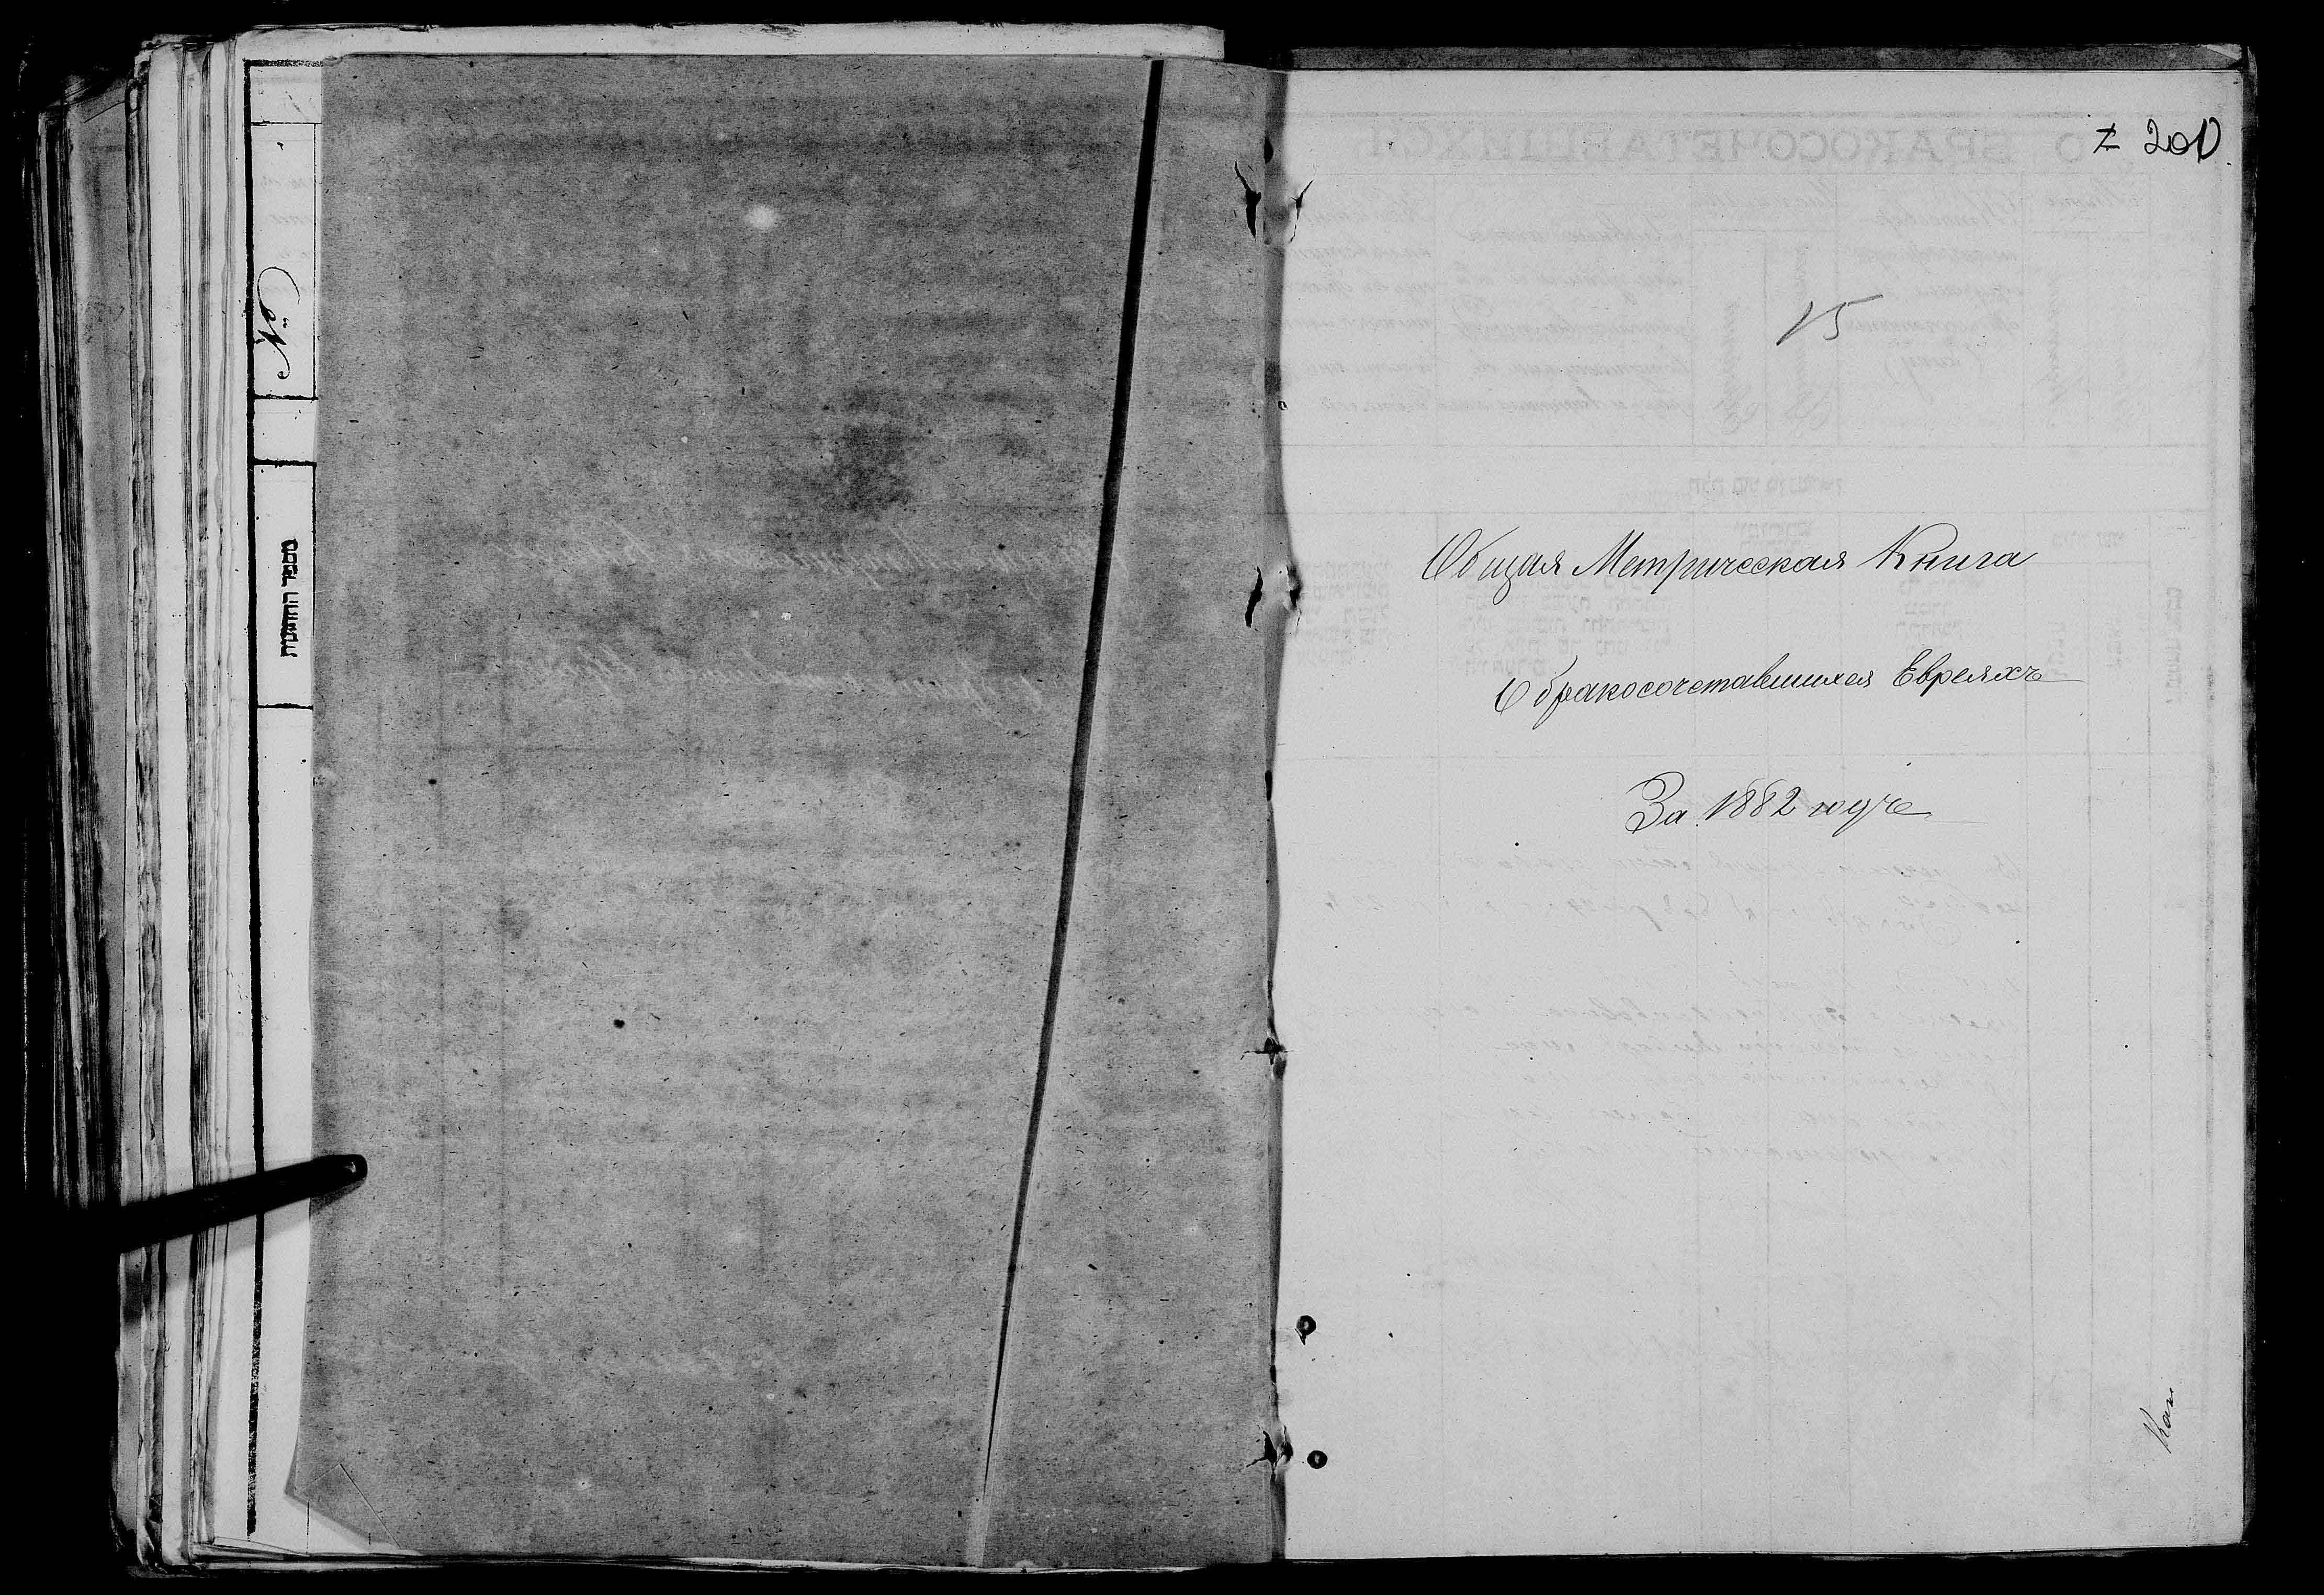 №
מספר החתונות
201
15
Общая Метрическая Книга
О бракосочетавшихся Евреяхъ
За 1882 годъ